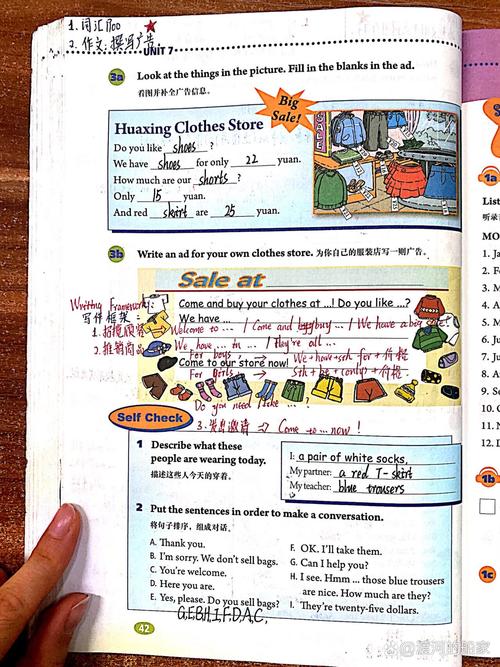 1. 词汇 1700
2. 作文: 撰写广告
UNIT 7
3a Look at the things in the picture. Fill in the blanks in the ad.
看图并补全广告信息。
Big Sale!
Huaxing Clothes Store
Do you like shoes ?
We have shoes for only 22 yuan.
How much are our shorts ?
Only 15 yuan.
And red skirt are 25 yuan.
SALE
3b Write an ad for your own clothes store. 为你自己的服装店写一则广告。
Sale at
Come and buy your clothes at ...! Do you like ...?
We have ...
Come to our store now!
Writing Framework:
写作框架:
1. 招揽顾客 Welcome to ... / Come and buy ... / We have a big sale!
2. 推销商品 We have ... in ... / They're all ...
For boys, → We + have + sth for + 价格
For girls, → Sth + be + (only) + 价格.
Do you need / like ... ?
3. 发出邀请 → Come to ... now !
Self Check
1 Describe what these
people are wearing today.
描述这些人今天的穿着。
I: a pair of white socks,
My partner: a red T-skirt
My teacher: blue trousers
2 Put the sentences in order to make a conversation.
将句子排序，组成对话。
A. Thank you.
B. I'm sorry. We don't sell bags.
C. You're welcome.
D. Here you are.
E. Yes, please. Do you sell bags?
F. OK. I'll take them.
G. Can I help you?
H. I see. Hmm ... those blue trousers
are nice. How much are they?
I. They're twenty-five dollars.
G,E,B,H,I,F,D,A,C,
42
1a
List
听录
MO
1. Ja
2. Fe
3. M
4. A
5. M
6. Ju
7. Ju
8. A
9. Se
10. O
11. N
12. D
1b
1c
@渡河的船家